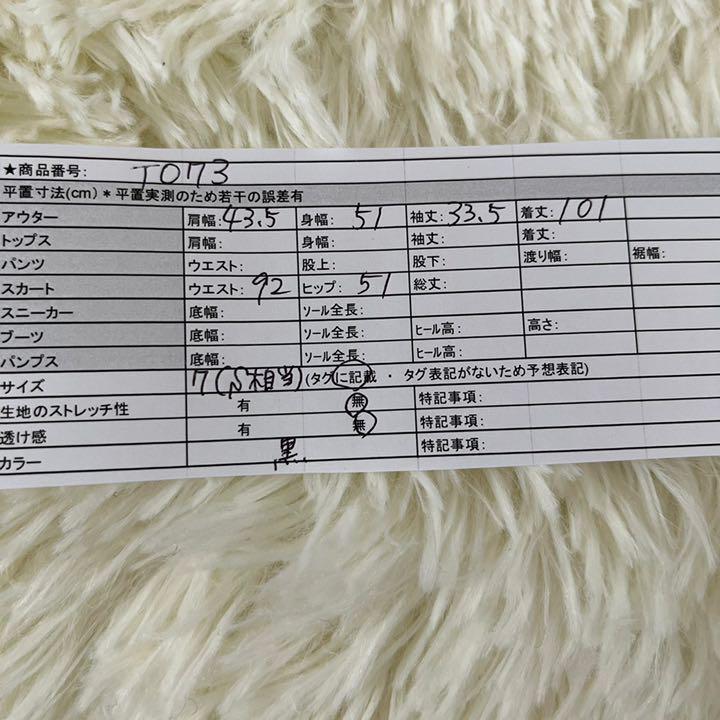 ★商品番号: T073
平置寸法(cm)＊平置実測のため若干の誤差有
アウター 肩幅:43.5 身幅: 51 袖丈:33.5 着丈:101
トップス 肩幅: 身幅: 袖丈: 着丈:
パンツ ウエスト: 股上: 股下: 渡り幅: 裾幅:
スカート ウエスト: 92 ヒップ: 51 総丈:
スニーカー 底幅: ソール全長:
ブーツ 底幅: ソール全長: ヒール高: 高さ:
パンプス 底幅: ソール全長: ヒール高:
サイズ 7(S相当)(タグに記載 ・ タグ表記がないため予想表記)
生地のストレッチ性 有 無 特記事項:
透け感 有 無 特記事項:
カラー 黒 特記事項: